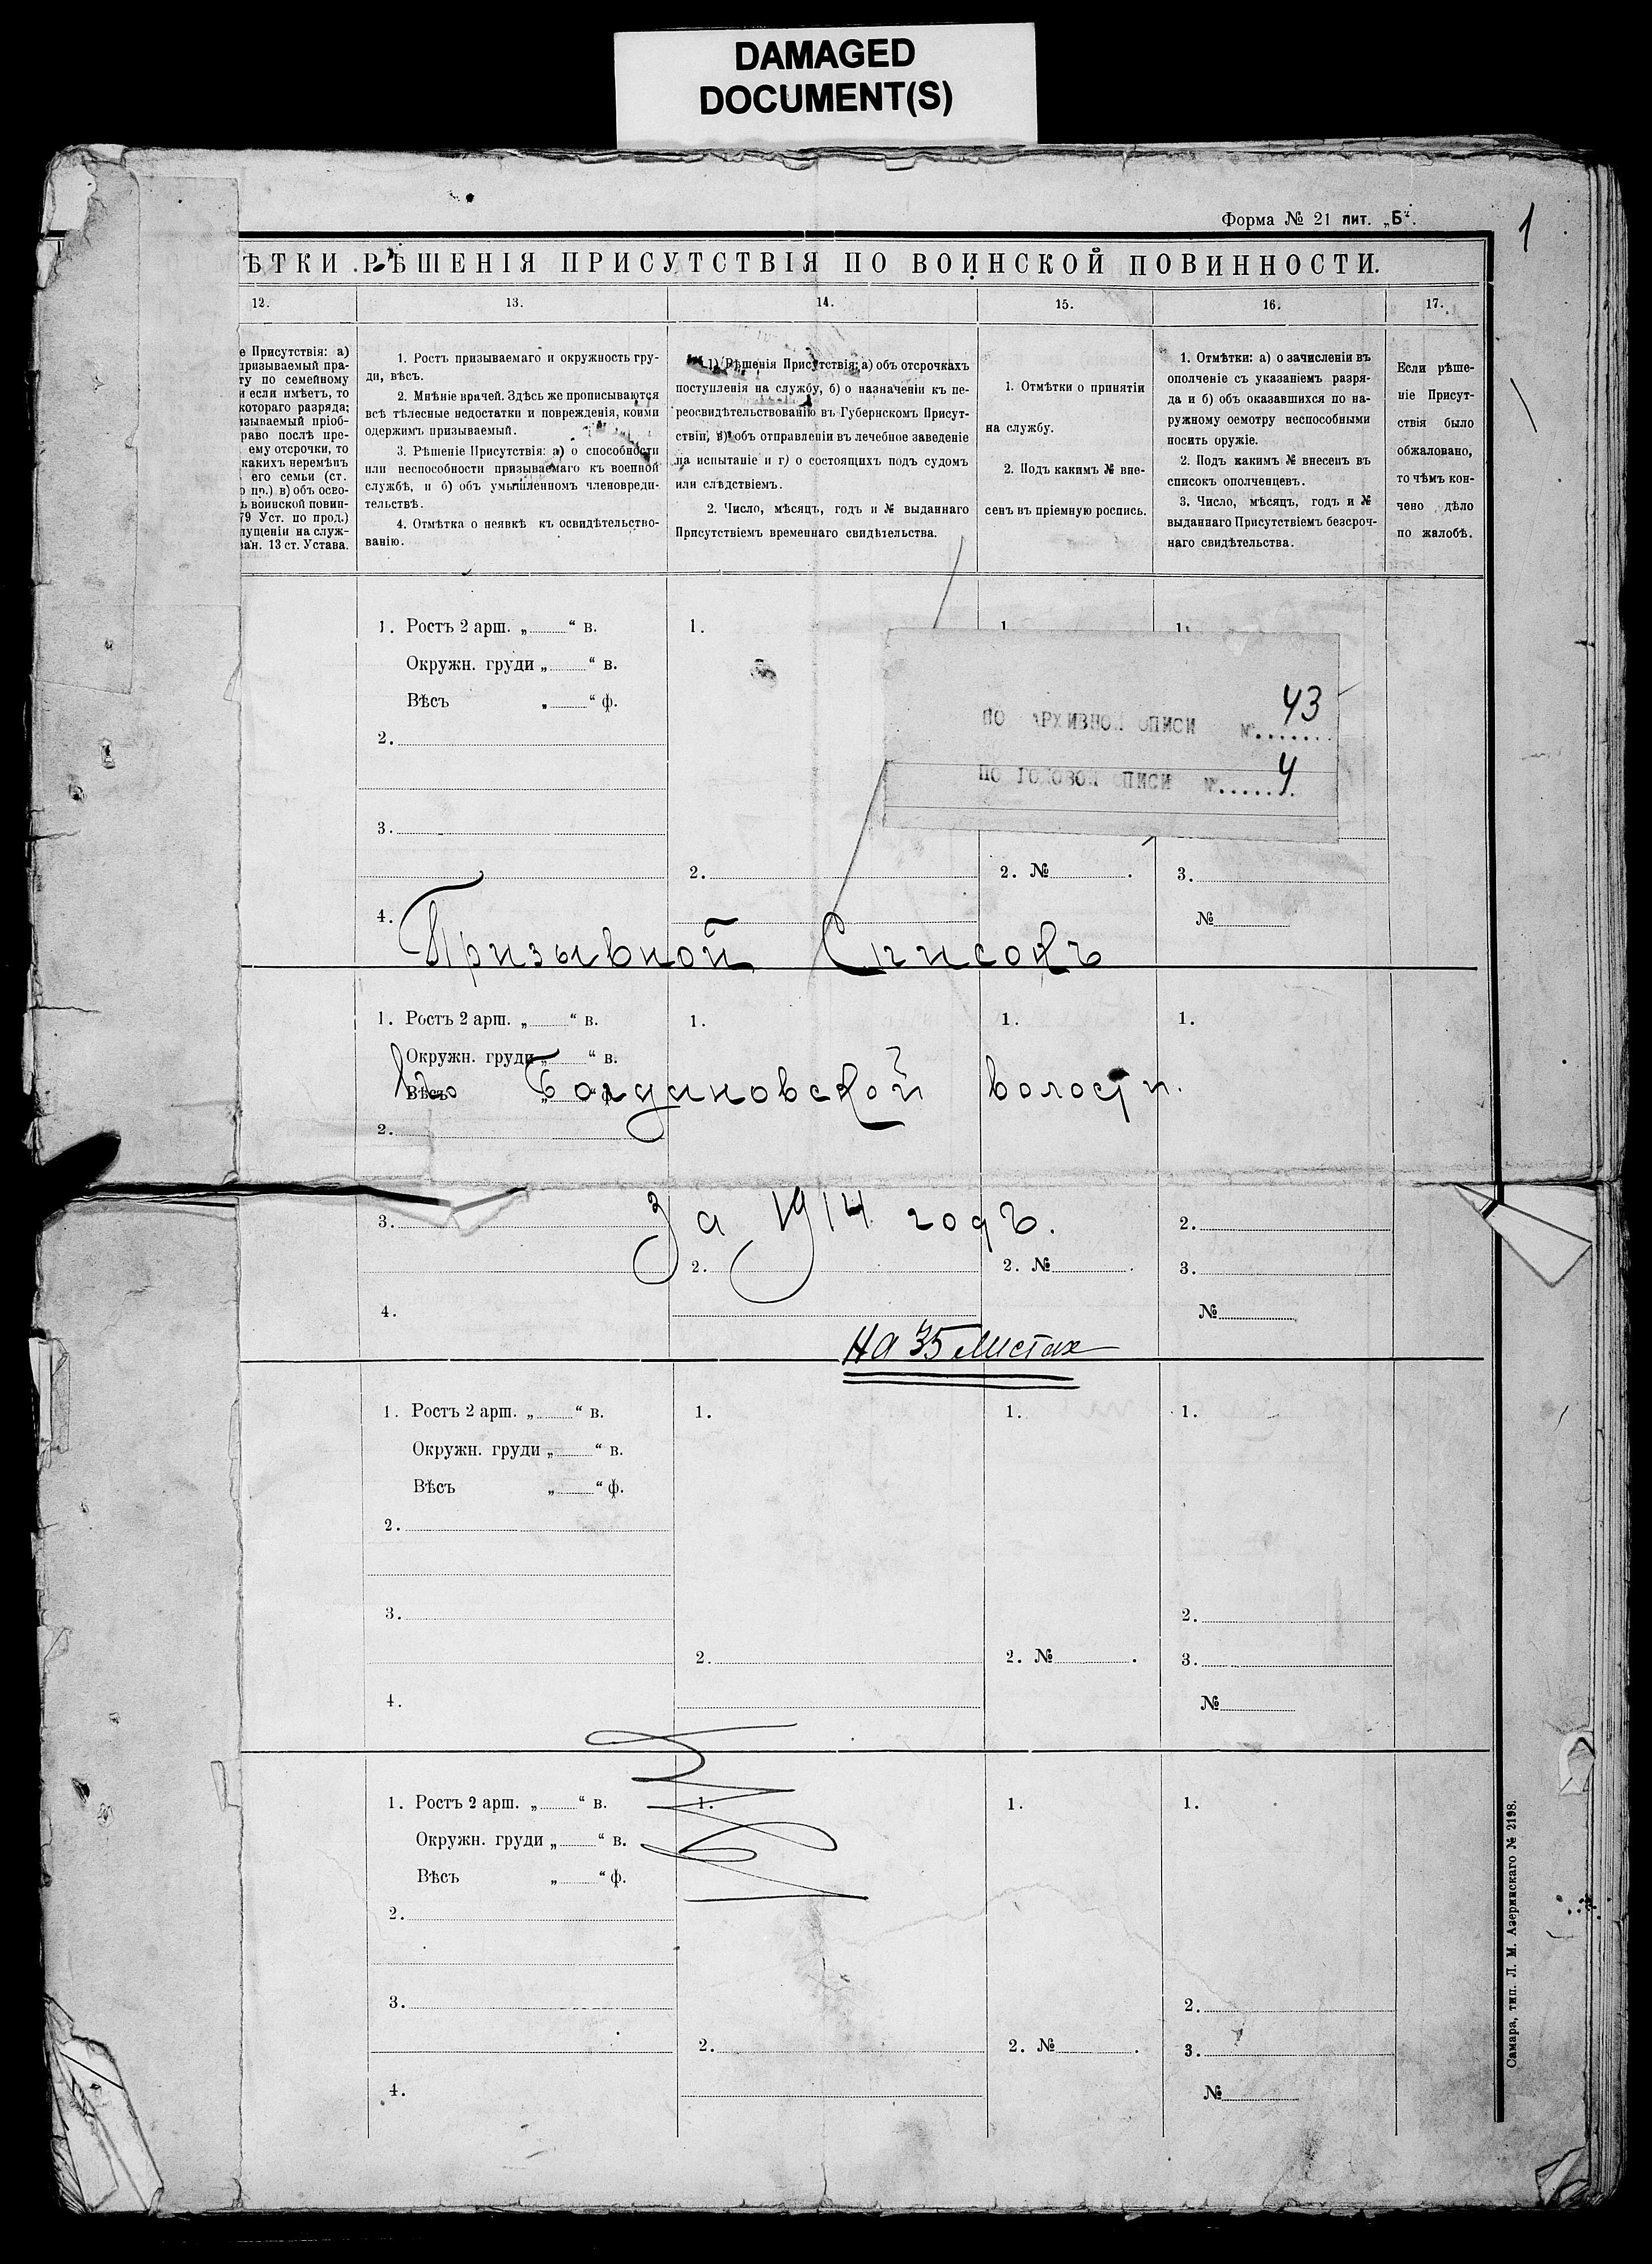 DAMAGED
DOCUMENT(S)
Форма № 21 лит. „Б“.
1
ѢТКИ РѢШЕНІЯ ПРИСУТСТВІЯ ПО ВОИНСКОЙ ПОВИННОСТИ.
12.
е Присутствія: а)
призываемый пра-
ту по семейному
и если имѣетъ, то
котораго разряда;
изываемый пріоб-
раво послѣ пре-
ему отсрочки, то
какихъ неремѣнъ
его семьи (ст.
в) объ осво-
ъ воинской повин-
79 Уст. по прод.)
пущеніи на служ-
13 ст. Устава.
13.
1. Ростъ призываемаго и окружность гру-
ди, вѣсъ.
2. Мнѣніе врачей. Здѣсь же прописываются
всѣ тѣлесные недостатки и поврежденія, коими
одержимъ призываемый.
3. Рѣшеніе Присутствія: а) о способности
или неспособности призываемаго къ военной
службѣ, и б) объ умышленномъ членовреди-
тельствѣ.
4. Отмѣтка о неявкѣ къ освидѣтельство-
ванію.
14.
1) Рѣшенія Присутствія: а) объ отсрочкахъ
поступленія на службу, б) о назначеніи къ пе-
реосвидѣтельствованію въ Губернскомъ Присут-
ствіи, в) объ отправленіи въ лечебное заведеніе
на испытаніе и г) о состоящихъ подъ судомъ
или слѣдствіемъ.
2. Число, мѣсяцъ, годъ и № выданнаго
Присутствіемъ временнаго свидѣтельства.
15.
1. Отмѣтки о принятіи
на службу.
2. Подъ какимъ № вне-
сенъ въ пріемную роспись.
16.
1. Отмѣтки: а) о зачисленіи въ
ополченіе съ указаніемъ разря-
да и б) объ оказавшихся по на-
ружному осмотру неспособными
носить оружіе.
2. Подъ какимъ № внесенъ въ
списокъ ополченцевъ.
3. Число, мѣсяцъ, годъ и №
выданнаго Присутствіемъ безсроч-
наго свидѣтельства.
17.
Если рѣше-
ніе Присут-
ствія было
обжаловано,
то чѣмъ кон-
чено дѣло
по жалобѣ.
1. Ростъ 2 арш. „ “ в.
Окружн. груди „ “ в.
Вѣсъ „ “ ф.
2.
3.
4.
1.
2.
1.
2. №
1.
3.
№
ПО АРХИВНОЙ ОПИСИ № 43
ПО ГОДОВОЙ ОПИСИ № 4
Призывной Списокъ
1. Ростъ 2 арш. „ “ в.
Окружн. груди „ “ в.
Вѣсъ „ “ ф.
2.
3.
4.
1.
2.
1.
2. №
1.
2.
3.
№
Богдановской волости.
За 1914 годъ.
На 35 листах
1. Ростъ 2 арш. „ “ в.
Окружн. груди „ “ в.
Вѣсъ „ “ ф.
2.
3.
4.
1.
2.
1.
2. №
1.
2.
3.
№
1. Ростъ 2 арш. „ “ в.
Окружн. груди „ “ в.
Вѣсъ „ “ ф.
2.
3.
4.
1.
2.
1.
2. №
1.
2.
3.
№
Самара, тип. Л. М. Азеринскаго № 2198.